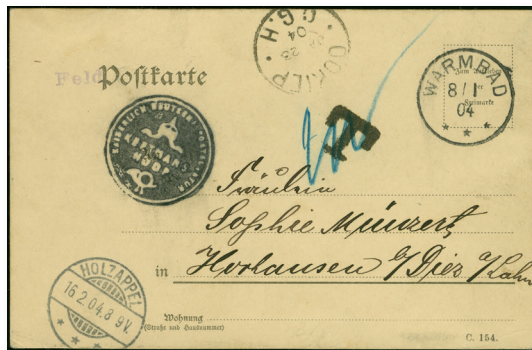 Feld Postkarte
OOKIEP
G.H
23
04
WARMBAD
8/1
04
KAISERLICH DEUTSCHE POSTAGENTUR
T
Fräulein
Sophie Münzert,
in Horhausen b/Diez a/Lahn
HOLZAPPEL
16.2.04.8-9V.
Wohnung
(Straße und Hausnummer)
C. 154.